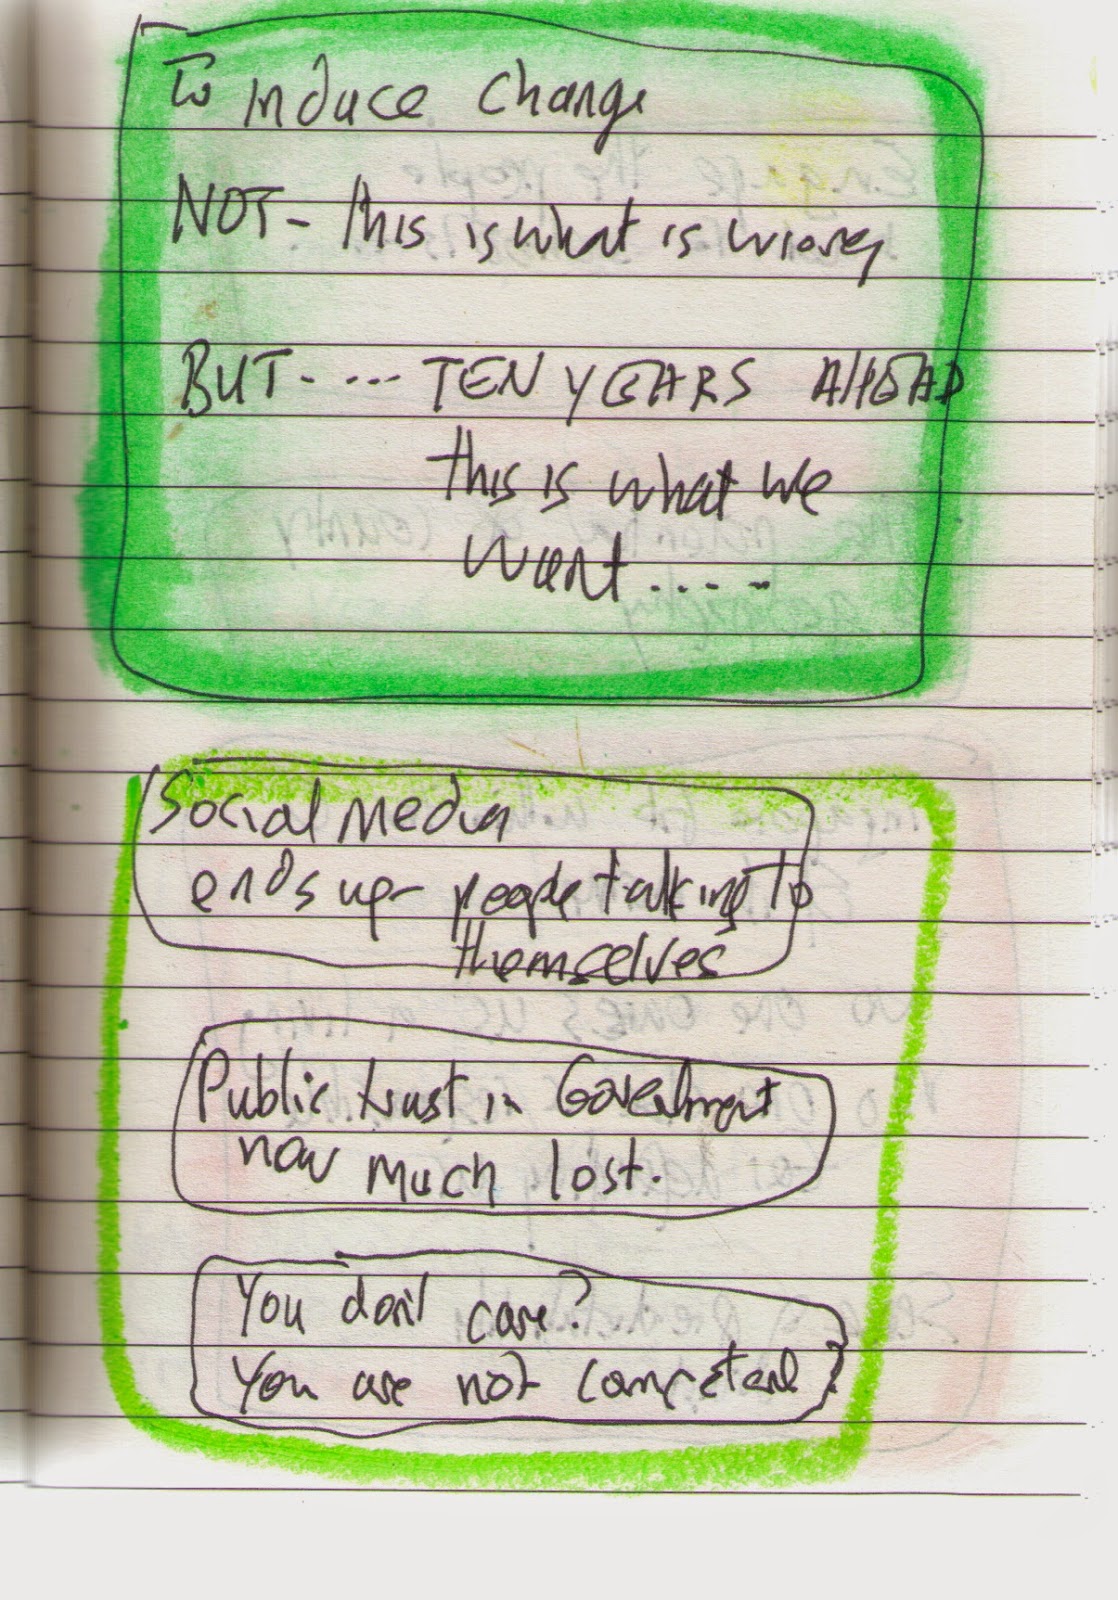 To induce change
NOT - this is what is wrong
BUT - .... TEN YEARS AHEAD
this is what we
want .....
Social media
ends up - people talking to
themselves
Public trust in Government
now much lost.
You don't care?
You are not competent?